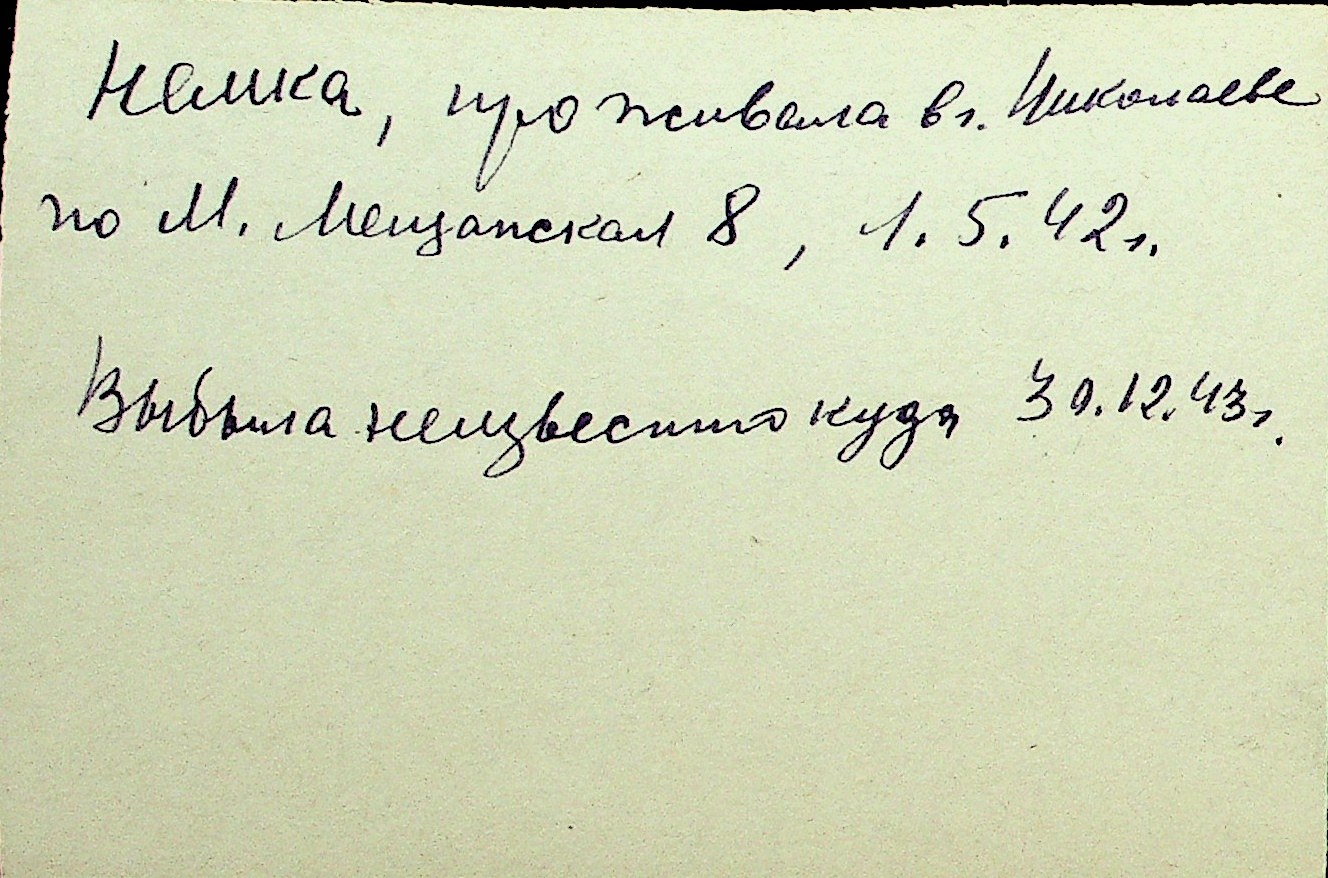 Немка, проживала в г. Николаеве
по М. Мещанская 8, 1.5.42г.
Выбыла неизвестно куда 30.12.43г.